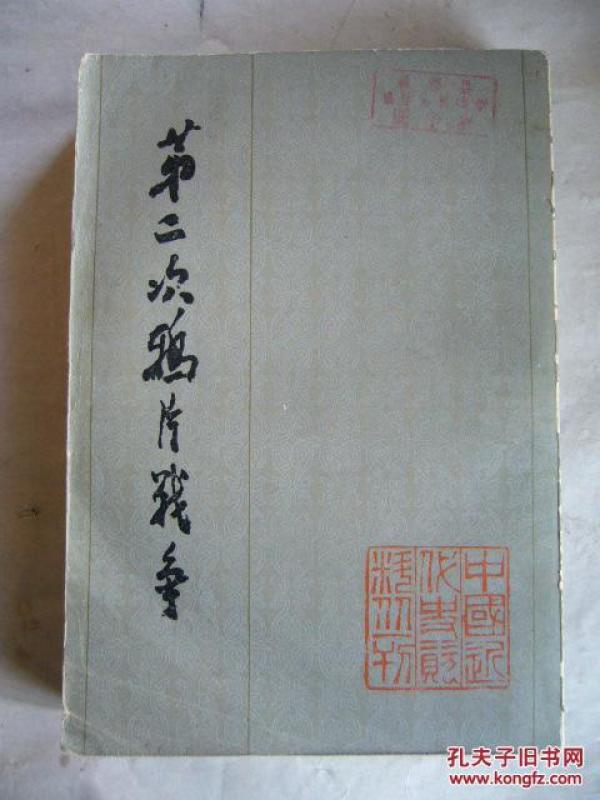 第二次鸦片戰爭
中國近
代史資
料丛刊
孔夫子旧书网
www.kongfz.com